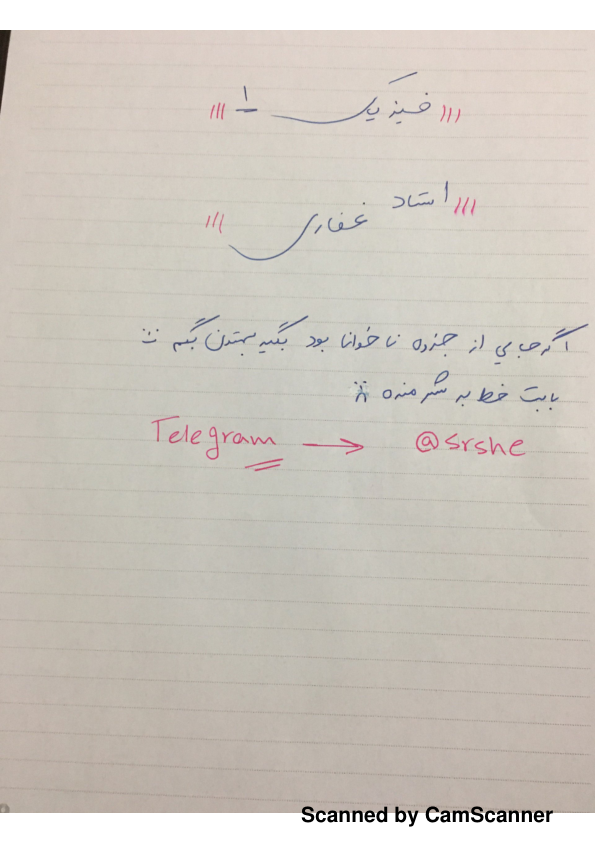 فیزیک ۱
استاد غفاری
اگه جایی از جزوه ناخوانا بود بگید بهتون بگم
بابت خط بد شرمنده
Telegram → @srshe
Scanned by CamScanner